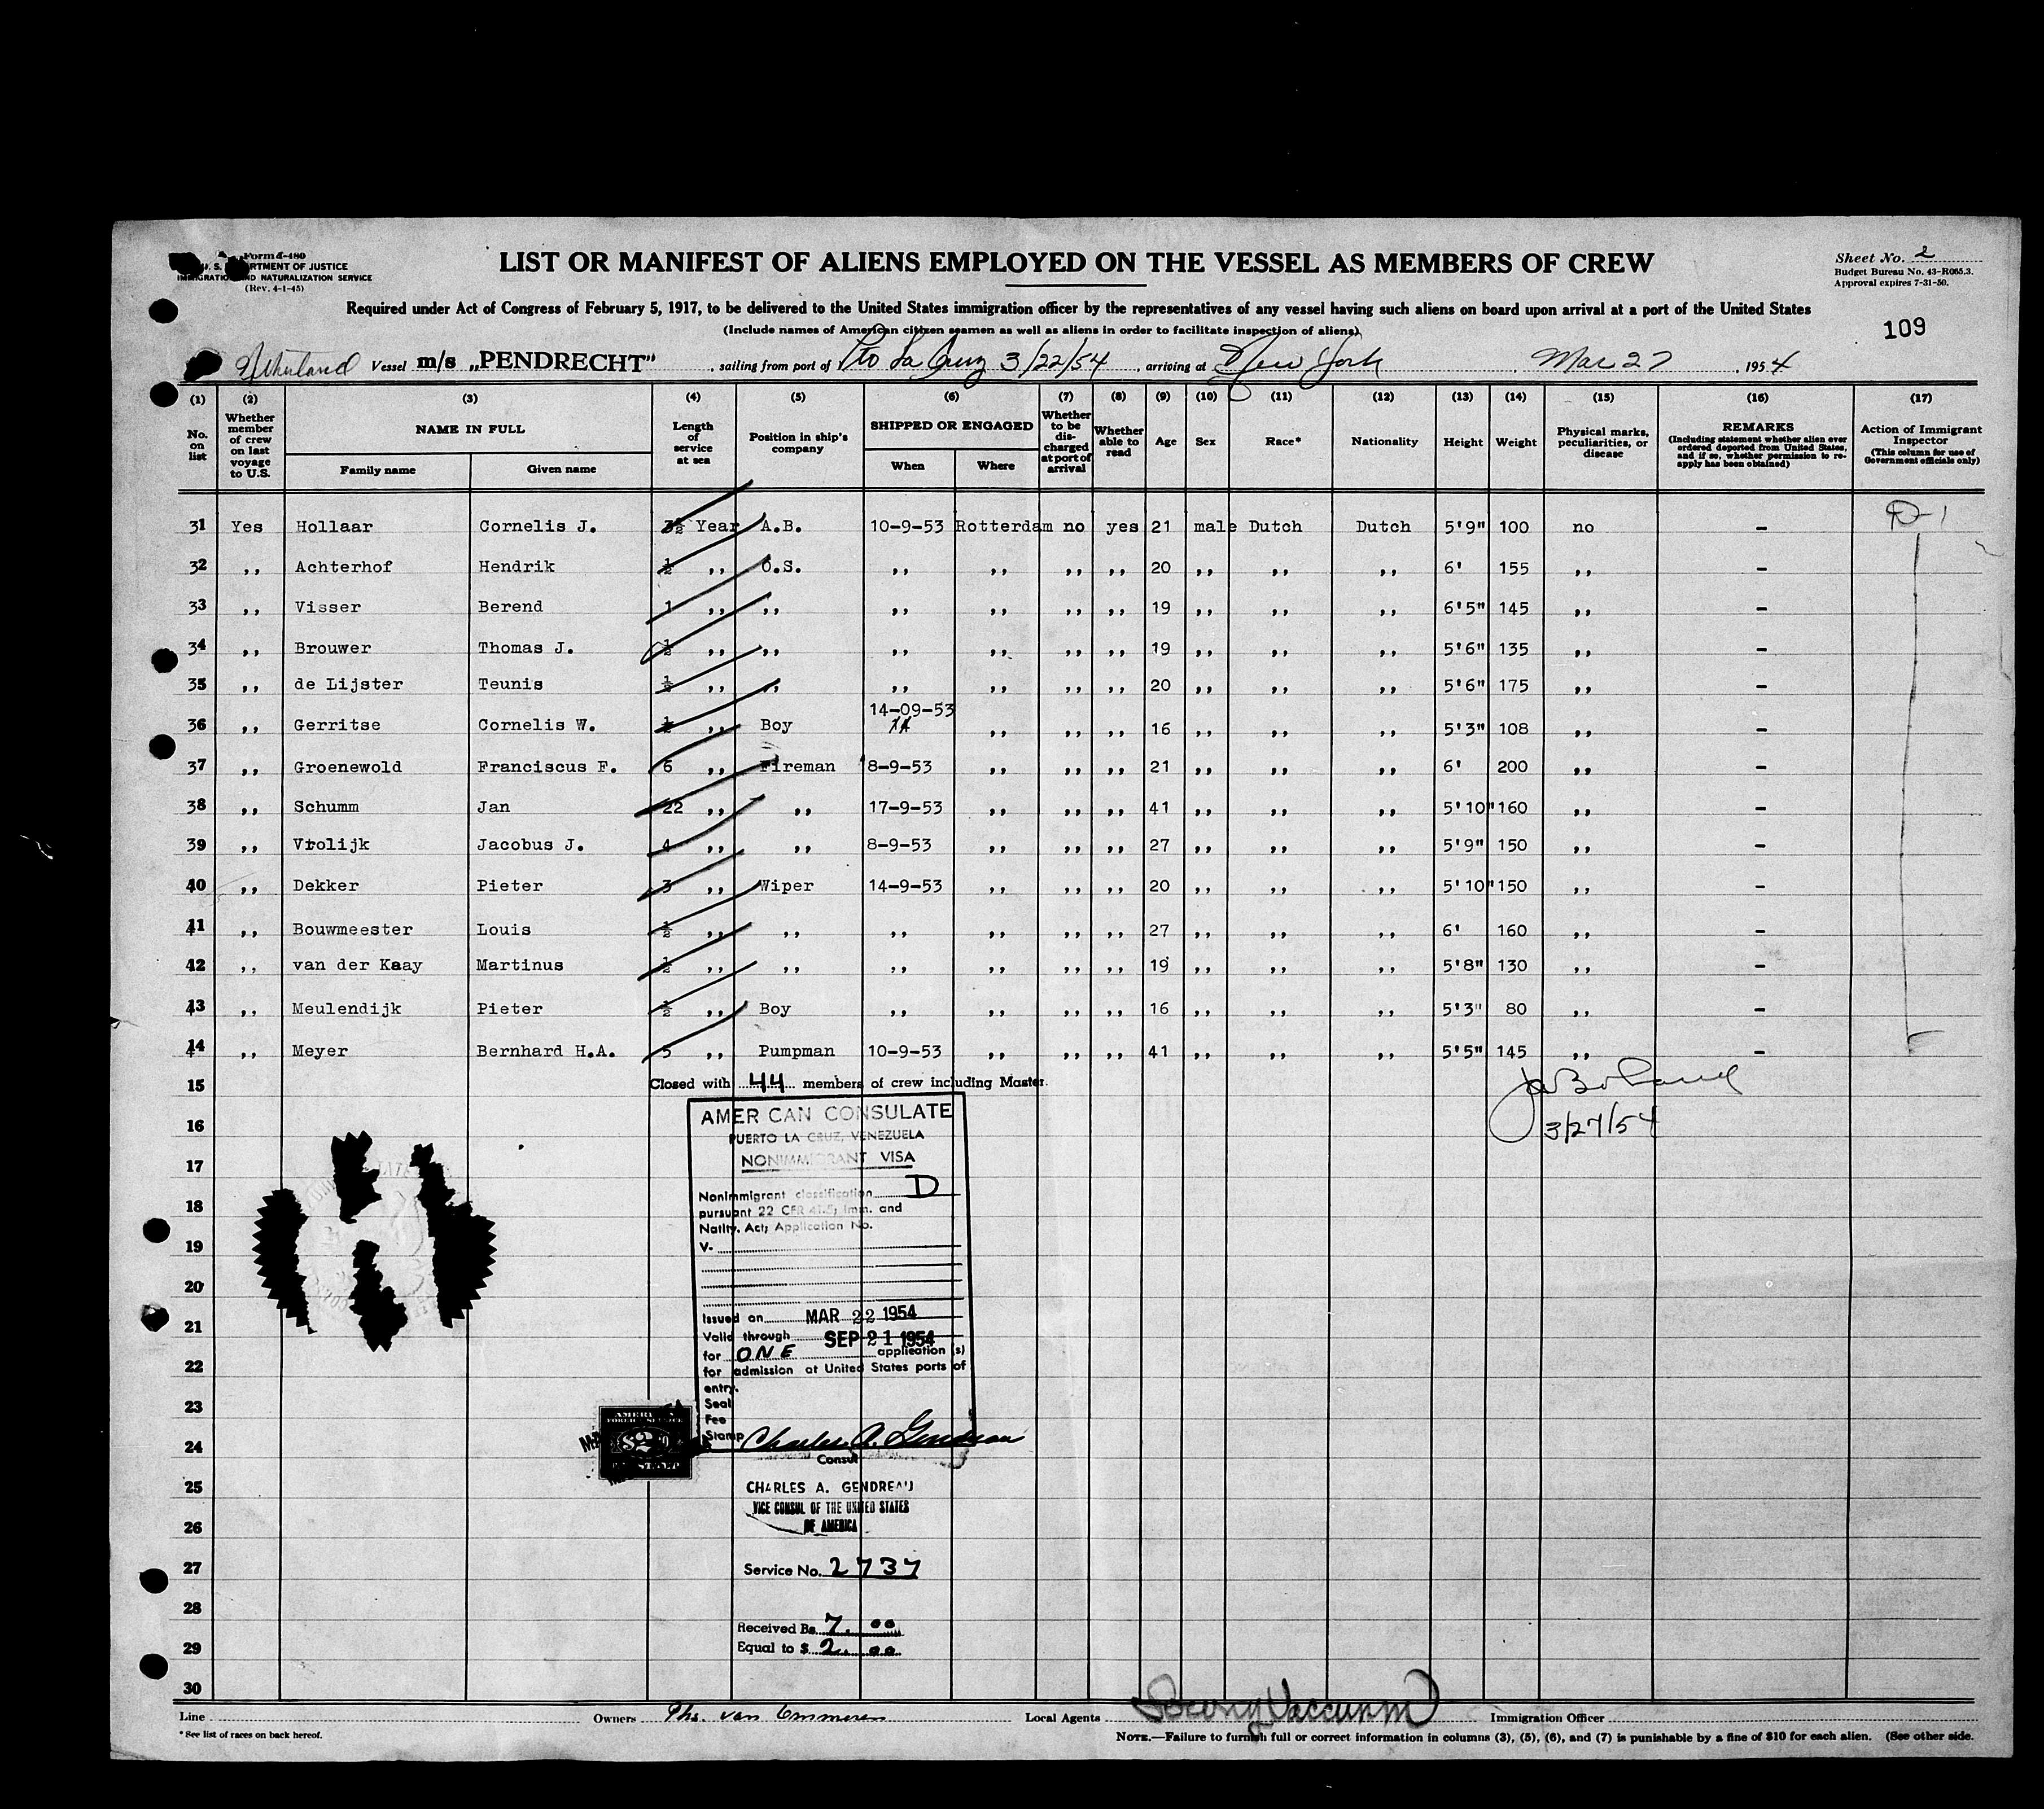 Form I-480
U. S. DEPARTMENT OF JUSTICE
IMMIGRATION AND NATURALIZATION SERVICE
(Rev. 4-1-45)
LIST OR MANIFEST OF ALIENS EMPLOYED ON THE VESSEL AS MEMBERS OF CREW
Sheet No. 2
Budget Bureau No. 43-R065.3.
Approval expires 7-31-50.
Required under Act of Congress of February 5, 1917, to be delivered to the United States immigration officer by the representatives of any vessel having such aliens on board upon arrival at a port of the United States
(Include names of American citizen seamen as well as aliens in order to facilitate inspection of aliens)
109
Netherland Vessel m/s „PENDRECHT" , sailing from port of Pto La Cruz 3/22/54 , arriving at New York , Mar 27 , 1954
(1) (2) (3) (4) (5) (6) (7) (8) (9) (10) (11) (12) (13) (14) (15) (16) (17)
No. on list
Whether member of crew on last voyage to U.S.
NAME IN FULL
Family name Given name
Length of service at sea
Position in ship's company
SHIPPED OR ENGAGED
When Where
Whether to be discharged at port of arrival
Whether able to read
Age Sex Race* Nationality Height Weight
Physical marks, peculiarities, or disease
REMARKS
(Including statement whether alien ever ordered deported from United States, and if so, whether permission to reapply has been obtained)
Action of Immigrant Inspector
(This column for use of Government officials only)
31 Yes Hollaar Cornelis J. 3½ Year A.B. 10-9-53 Rotterdam no yes 21 male Dutch Dutch 5'9" 100 no - D-1
32 ,, Achterhof Hendrik ½ ,, O.S. ,, ,, ,, ,, 20 ,, ,, ,, 6' 155 ,, -
33 ,, Visser Berend 1 ,, ,, ,, ,, ,, ,, 19 ,, ,, ,, 6'5" 145 ,, -
34 ,, Brouwer Thomas J. ½ ,, ,, ,, ,, ,, ,, 19 ,, ,, ,, 5'6" 135 ,, -
35 ,, de Lijster Teunis ½ ,, ,, ,, ,, ,, ,, 20 ,, ,, ,, 5'6" 175 ,, -
36 ,, Gerritse Cornelis W. ½ ,, Boy 14-09-53 ,, ,, ,, 16 ,, ,, ,, 5'3" 108 ,, -
37 ,, Groenewold Franciscus F. 6 ,, Fireman 8-9-53 ,, ,, ,, 21 ,, ,, ,, 6' 200 ,, -
38 ,, Schumm Jan 22 ,, ,, 17-9-53 ,, ,, ,, 41 ,, ,, ,, 5'10" 160 ,, -
39 ,, Vrolijk Jacobus J. 4 ,, ,, 8-9-53 ,, ,, ,, 27 ,, ,, ,, 5'9" 150 ,, -
40 ,, Dekker Pieter 3 ,, Wiper 14-9-53 ,, ,, ,, 20 ,, ,, ,, 5'10" 150 ,, -
41 ,, Bouwmeester Louis ½ ,, ,, ,, ,, ,, ,, 27 ,, ,, ,, 6' 160 ,, -
42 ,, van der Kaay Martinus ½ ,, ,, ,, ,, ,, ,, 19 ,, ,, ,, 5'8" 130 ,, -
43 ,, Meulendijk Pieter ½ ,, Boy ,, ,, ,, ,, 16 ,, ,, ,, 5'3" 80 ,, -
44 ,, Meyer Bernhard H.A. 5 ,, Pumpman 10-9-53 ,, ,, ,, 41 ,, ,, ,, 5'5" 145 ,, -
15 Closed with 44 members of crew including Master.
3/27/54
16
17
18
19
20
21
22
23
24
25
26
27
28
29
30
AMERICAN CONSULATE
PUERTO LA CRUZ, VENEZUELA
NONIMMIGRANT VISA
Nonimmigrant classification D
pursuant 22 CFR 41.5; Imm. and
Natlty. Act; Application No.
V.
Issued on MAR 22 1954
Valid through SEP 21 1954
for ONE application (s)
for admission at United States ports of
entry.
Seal
Fee
Stamp Charles A. Gendreau
Consul
CHARLES A. GENDREAU
VICE CONSUL OF THE UNITED STATES
OF AMERICA
Service No. 2737
Received Bs. 7.00
Equal to $ 2.00
Line Owners Phs. van Ommeren Local Agents Socony Vaccuum Immigration Officer
* See list of races on back hereof.
NOTE.—Failure to furnish full or correct information in columns (3), (5), (6), and (7) is punishable by a fine of $10 for each alien. (See other side.